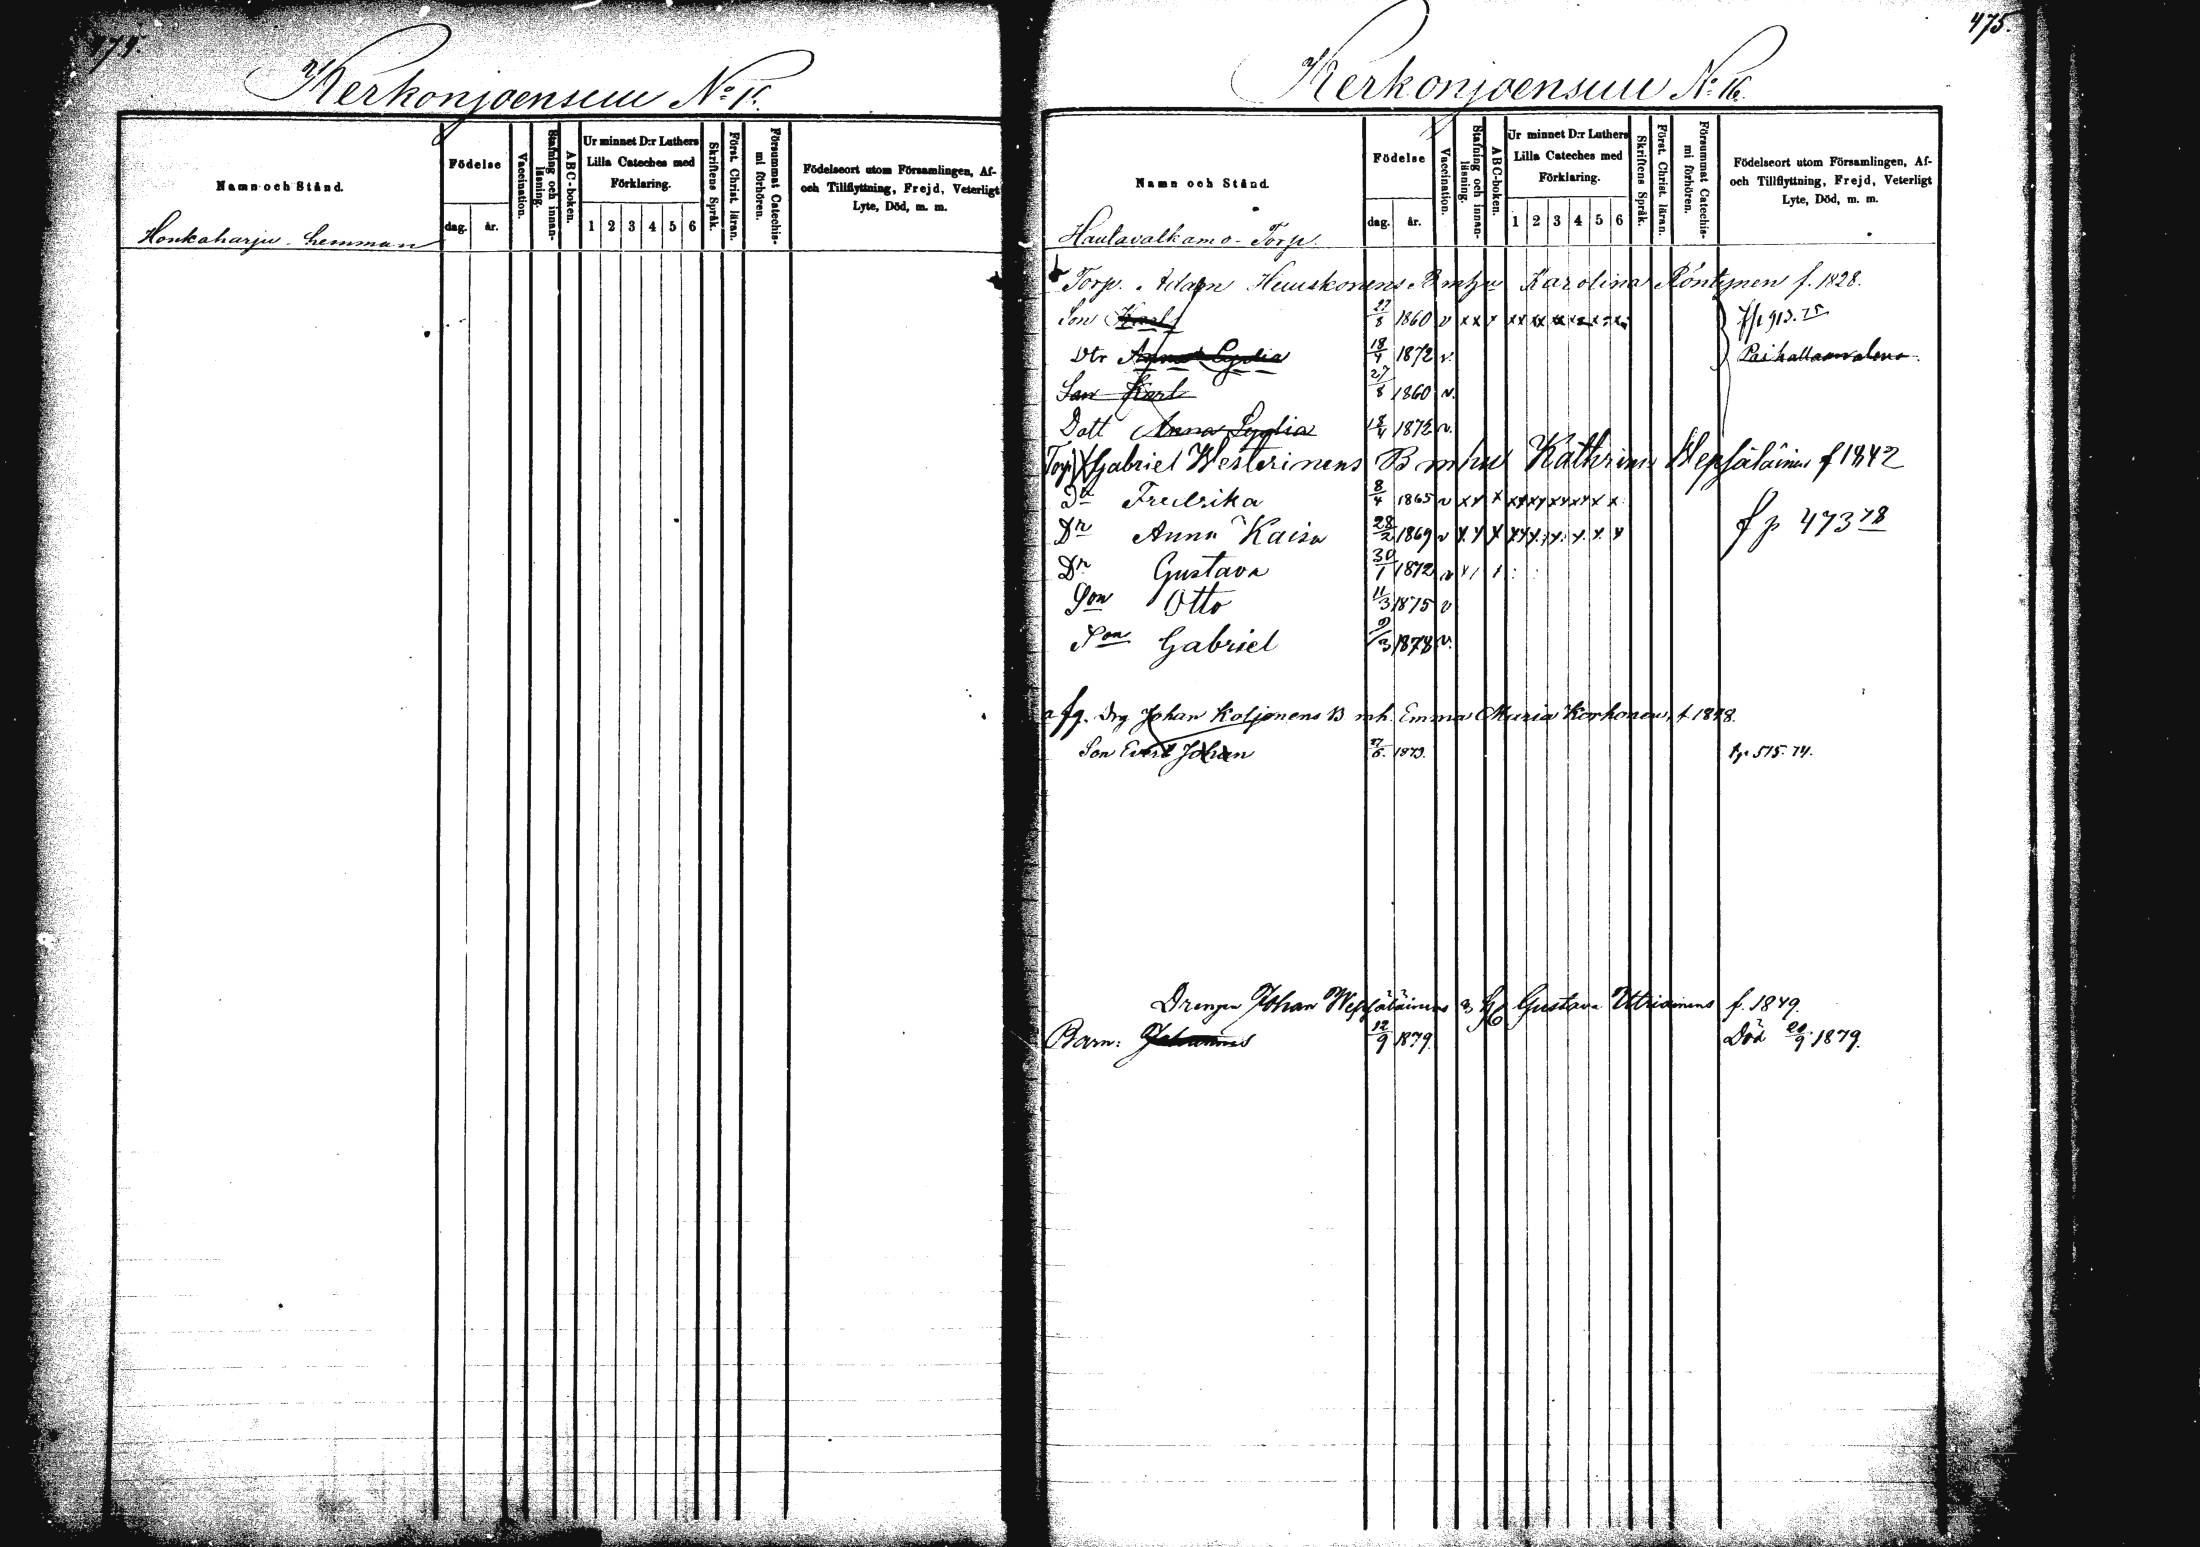 474.
Kerkonjoensuu No 16.
Namn och Stånd.
Födelse
dag.
år.
Vaccination.
Stafning och innan-
läsning.
ABC-boken.
Ur minnet D:r Luthers
Lilla Cateches med
Förklaring.
1 2 3 4 5 6
Skriftens Språk.
Först. Christ. läran.
Försummat Catechis-
mi förhören.
Födelseort utom Församlingen, Af-
och Tillflyttning, Frejd, Veterligt
Lyte, Död, m. m.
Honkaharju - hemman
475.
Kerkonjoensuu No 16.
Namn och Stånd.
Födelse
dag.
år.
Vaccination.
Stafning och innan-
läsning.
ABC-boken.
Ur minnet D:r Luthers
Lilla Cateches med
Förklaring.
1 2 3 4 5 6
Skriftens Språk.
Först. Christ. läran.
Försummat Catechis-
mi förhören.
Födelseort utom Församlingen, Af-
och Tillflyttning, Frejd, Veterligt
Lyte, Död, m. m.
Hautavalkamo - Torp.
Torp. Adam Huuskonens B mhu Karolina Röntynen f. 1828.
Son Karl 27/8 1860 v x x x xx xx xx xx x x
Dtr Anna Lydia 18/4 1872 v.
Son Karl 27/8 1860 v.
Dott Anna Lydia 18/4 1872 v.
Torp Gabriel Westerinens B mhu Kathrina Wepsäläinen f 1842
Dr Fredrika 8/4 1865 v x x x xx xx xx xx x x
Dr Anna Kaisa 28/2 1869 v x x x xx x x x x x f p 473 78
Dr Gustava 30/1 1872 v
Son Otto 11/3 1875 v
Son Gabriel 9/3 1878 v.
afg. Drg Johan Koljonens B mh. Emma Maria Korhonen, f 1848.
Son Evert Johan 1873. fp. 515. 74.
Drengen Johan Wepsäläinens Gustava Utriainens f. 1849.
Barn: Johannes 12/9 1879. Död 20/9 1879.